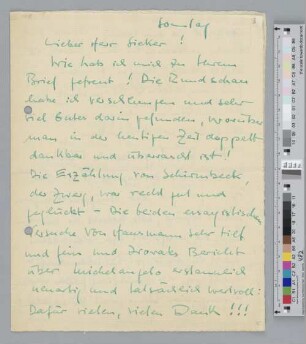 Sonntag
Lieber Herr Sieker!
Wie hab ich mich zu Ihrem
Brief gefreut! Die Rundschau
habe ich verschlungen und sehr
viel Gutes darin gefunden, worüber
man in der heutigen Zeit doppelt
dankbar und überrascht ist!
Die Erzählung von Schirmbeck,
der Zweig, war recht gut und
geglückt – Die beiden essayistischen
Versuche von Hausmann sehr tief
und fein und Bericht
über Michelangelo erstaunlich
neuartig und tatsächlich wertvoll:
Dafür vielen, vielen Dank!!!